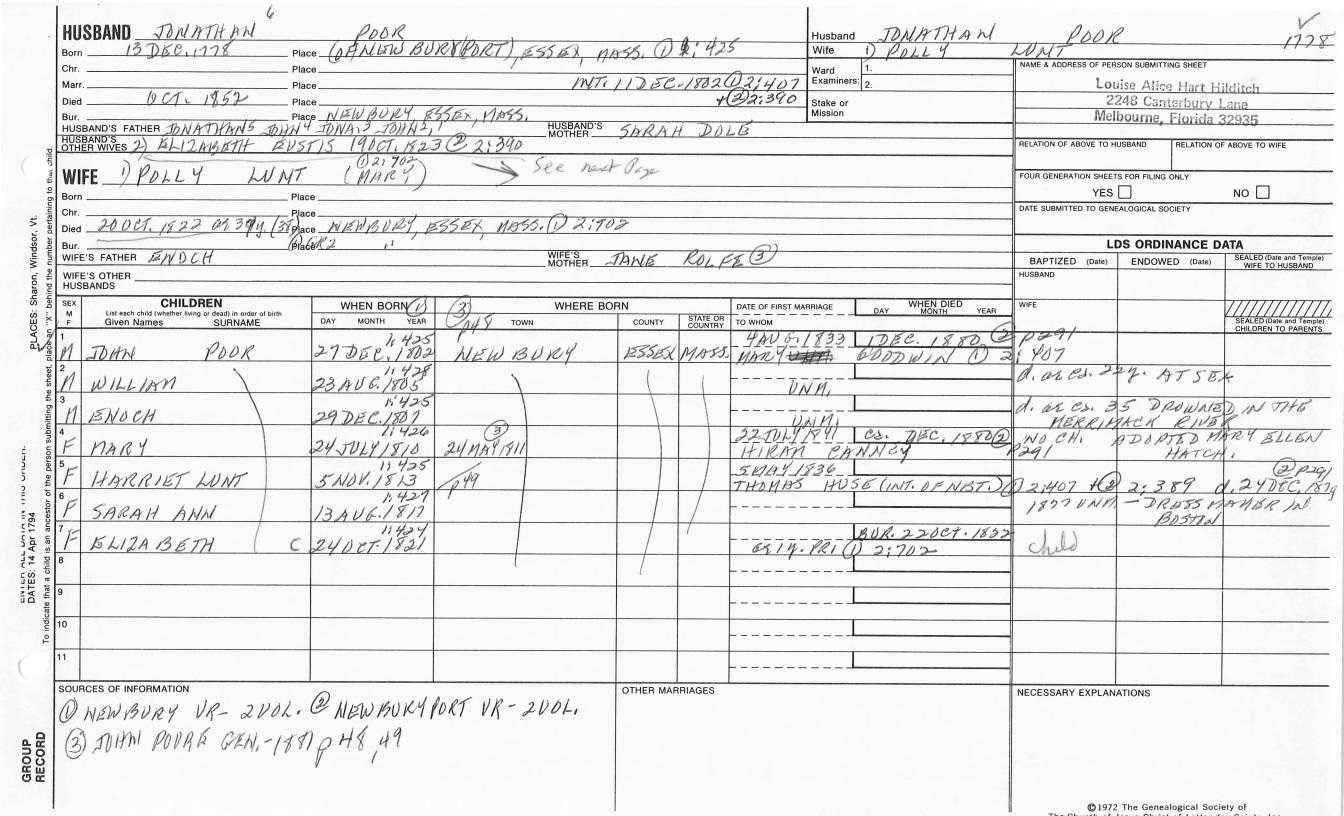 6
HUSBAND JONATHAN POOR
Born 13 DEC. 1778 Place (OF NEWBURY(PORT), ESSEX, MASS. ① 1:425
Chr. Place
Marr. Place INT. 11 DEC. 1802 ① 2:407
+② 2:390
Died OCT. 1852 Place
Bur. Place NEWBURY, ESSEX, MASS.
HUSBAND'S FATHER JONATHAN5 JOHN4 JONA.3 JOHN2, 1 HUSBAND'S MOTHER SARAH DOLE
HUSBAND'S OTHER WIVES 2) ELIZABETH EUSTIS 19 OCT. 1823 ② 2:390
① 2:702
WIFE 1) POLLY LUNT (MARY) See next Page
Born Place
Chr. Place
Died 20 OCT. 1822 Place NEWBURY, ESSEX, MASS. ① 2:702
Bur. Place GR2 "
WIFE'S FATHER ENOCH WIFE'S MOTHER JANE ROLFE ③
WIFE'S OTHER HUSBANDS
Husband JONATHAN POOR 1778
Wife 1) POLLY LUNT
Ward Examiners: 1.
2.
Stake or Mission
NAME & ADDRESS OF PERSON SUBMITTING SHEET
Louise Alice Hart Hilditch
2248 Canterbury Lane
Melbourne, Florida 32935
RELATION OF ABOVE TO HUSBAND RELATION OF ABOVE TO WIFE
FOUR GENERATION SHEETS FOR FILING ONLY
YES NO
DATE SUBMITTED TO GENEALOGICAL SOCIETY
LDS ORDINANCE DATA
BAPTIZED (Date) ENDOWED (Date) SEALED (Date and Temple) WIFE TO HUSBAND
HUSBAND
WIFE
SEALED (Date and Temple) CHILDREN TO PARENTS
SEX M F CHILDREN WHEN BORN ① ③ WHERE BORN DATE OF FIRST MARRIAGE WHEN DIED
List each child (whether living or dead) in order of birth
Given Names SURNAME DAY MONTH YEAR p48 TOWN COUNTY STATE OR COUNTRY TO WHOM DAY MONTH YEAR
1 1:425 4 AUG. 1833 1 DEC. 1880 ② p291
M JOHN POOR 27 DEC. 1802 NEWBURY ESSEX MASS. MARY GOODWIN ① 2:407
2 1:428 d. at ca. 22y. AT SEA
M WILLIAM 23 AUG. 1805 UNM.
3 1:425 d. at ca. 35 DROWNED IN THE
M ENOCH 29 DEC. 1807 UNM. MERRIMACK RIVER
4 1:426 ③ 22 JULY 1841 ca. DEC. 1880 ② NO CH. ADOPTED MARY ELLEN
F MARY 24 JULY 1810 24 MAY 1811 HIRAM CANNEY p291 HATCH.
5 1:425 5 MAY 1836 ② p291
F HARRIET LUNT 5 NOV. 1813 p49 THOMAS HUSE (INT. OF NBT.) ① 2:407 +② 2:389 d. 24 DEC. 1879
6 1:427 UNM. — DRESS MAKER IN
F SARAH ANN 13 AUG. 1817 BOSTON
7 1:424 BUR. 22 OCT. 1822
F ELIZABETH C 24 OCT. 1821 ae 1y. PR1 ① 2:702 child
8
9
10
11
SOURCES OF INFORMATION
① NEWBURY VR- 2 VOL. ② NEWBURYPORT VR - 2 VOL.
③ JOHN POORE GEN.-1881 p 48, 49
OTHER MARRIAGES
NECESSARY EXPLANATIONS
©1972 The Genealogical Society of
PLACES: Sharon, Windsor, Vt.
To indicate that a child is an ancestor of the person submitting the sheet, place an "X" behind the number pertaining to that child.
ENTER ALL DATA IN THIS ORDER:
DATES: 14 Apr 1794
GROUP RECORD